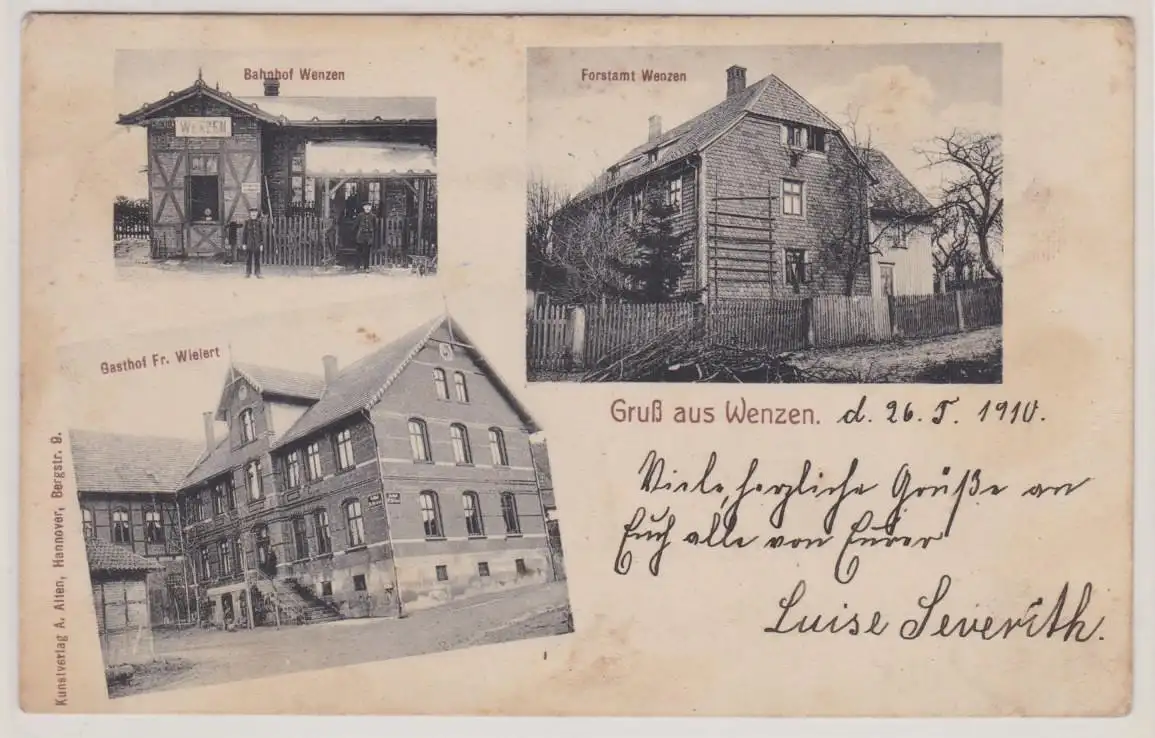 Bahnhof Wenzen
WENZEN
Forstamt Wenzen
Gasthof Fr. Wielert
Gruß aus Wenzen. d. 26. 5. 1910.
Viele, herzliche Grüße an
Euch alle von Eurer
Luise Severith.
Kunstverlag A. Alten, Hannover, Bergstr. 9.